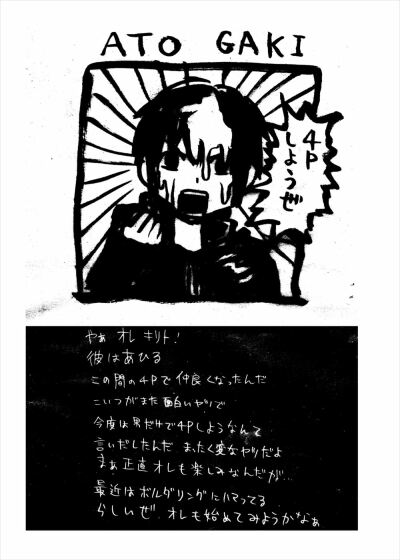 ATO GAKI
4P
しようぜ
やあ オレ キリト!
彼はあひる
この間の4Pで仲良くなったんだ
こいつがまた面白いヤツで
今度は男だけで4Pしようなんて
言いだしたんだ まったく変なヤツだよ
まぁ正直オレも楽しみなんだが…
最近はボルダリングにハマってる
らしいぜ オレも始めてみようかなぁ